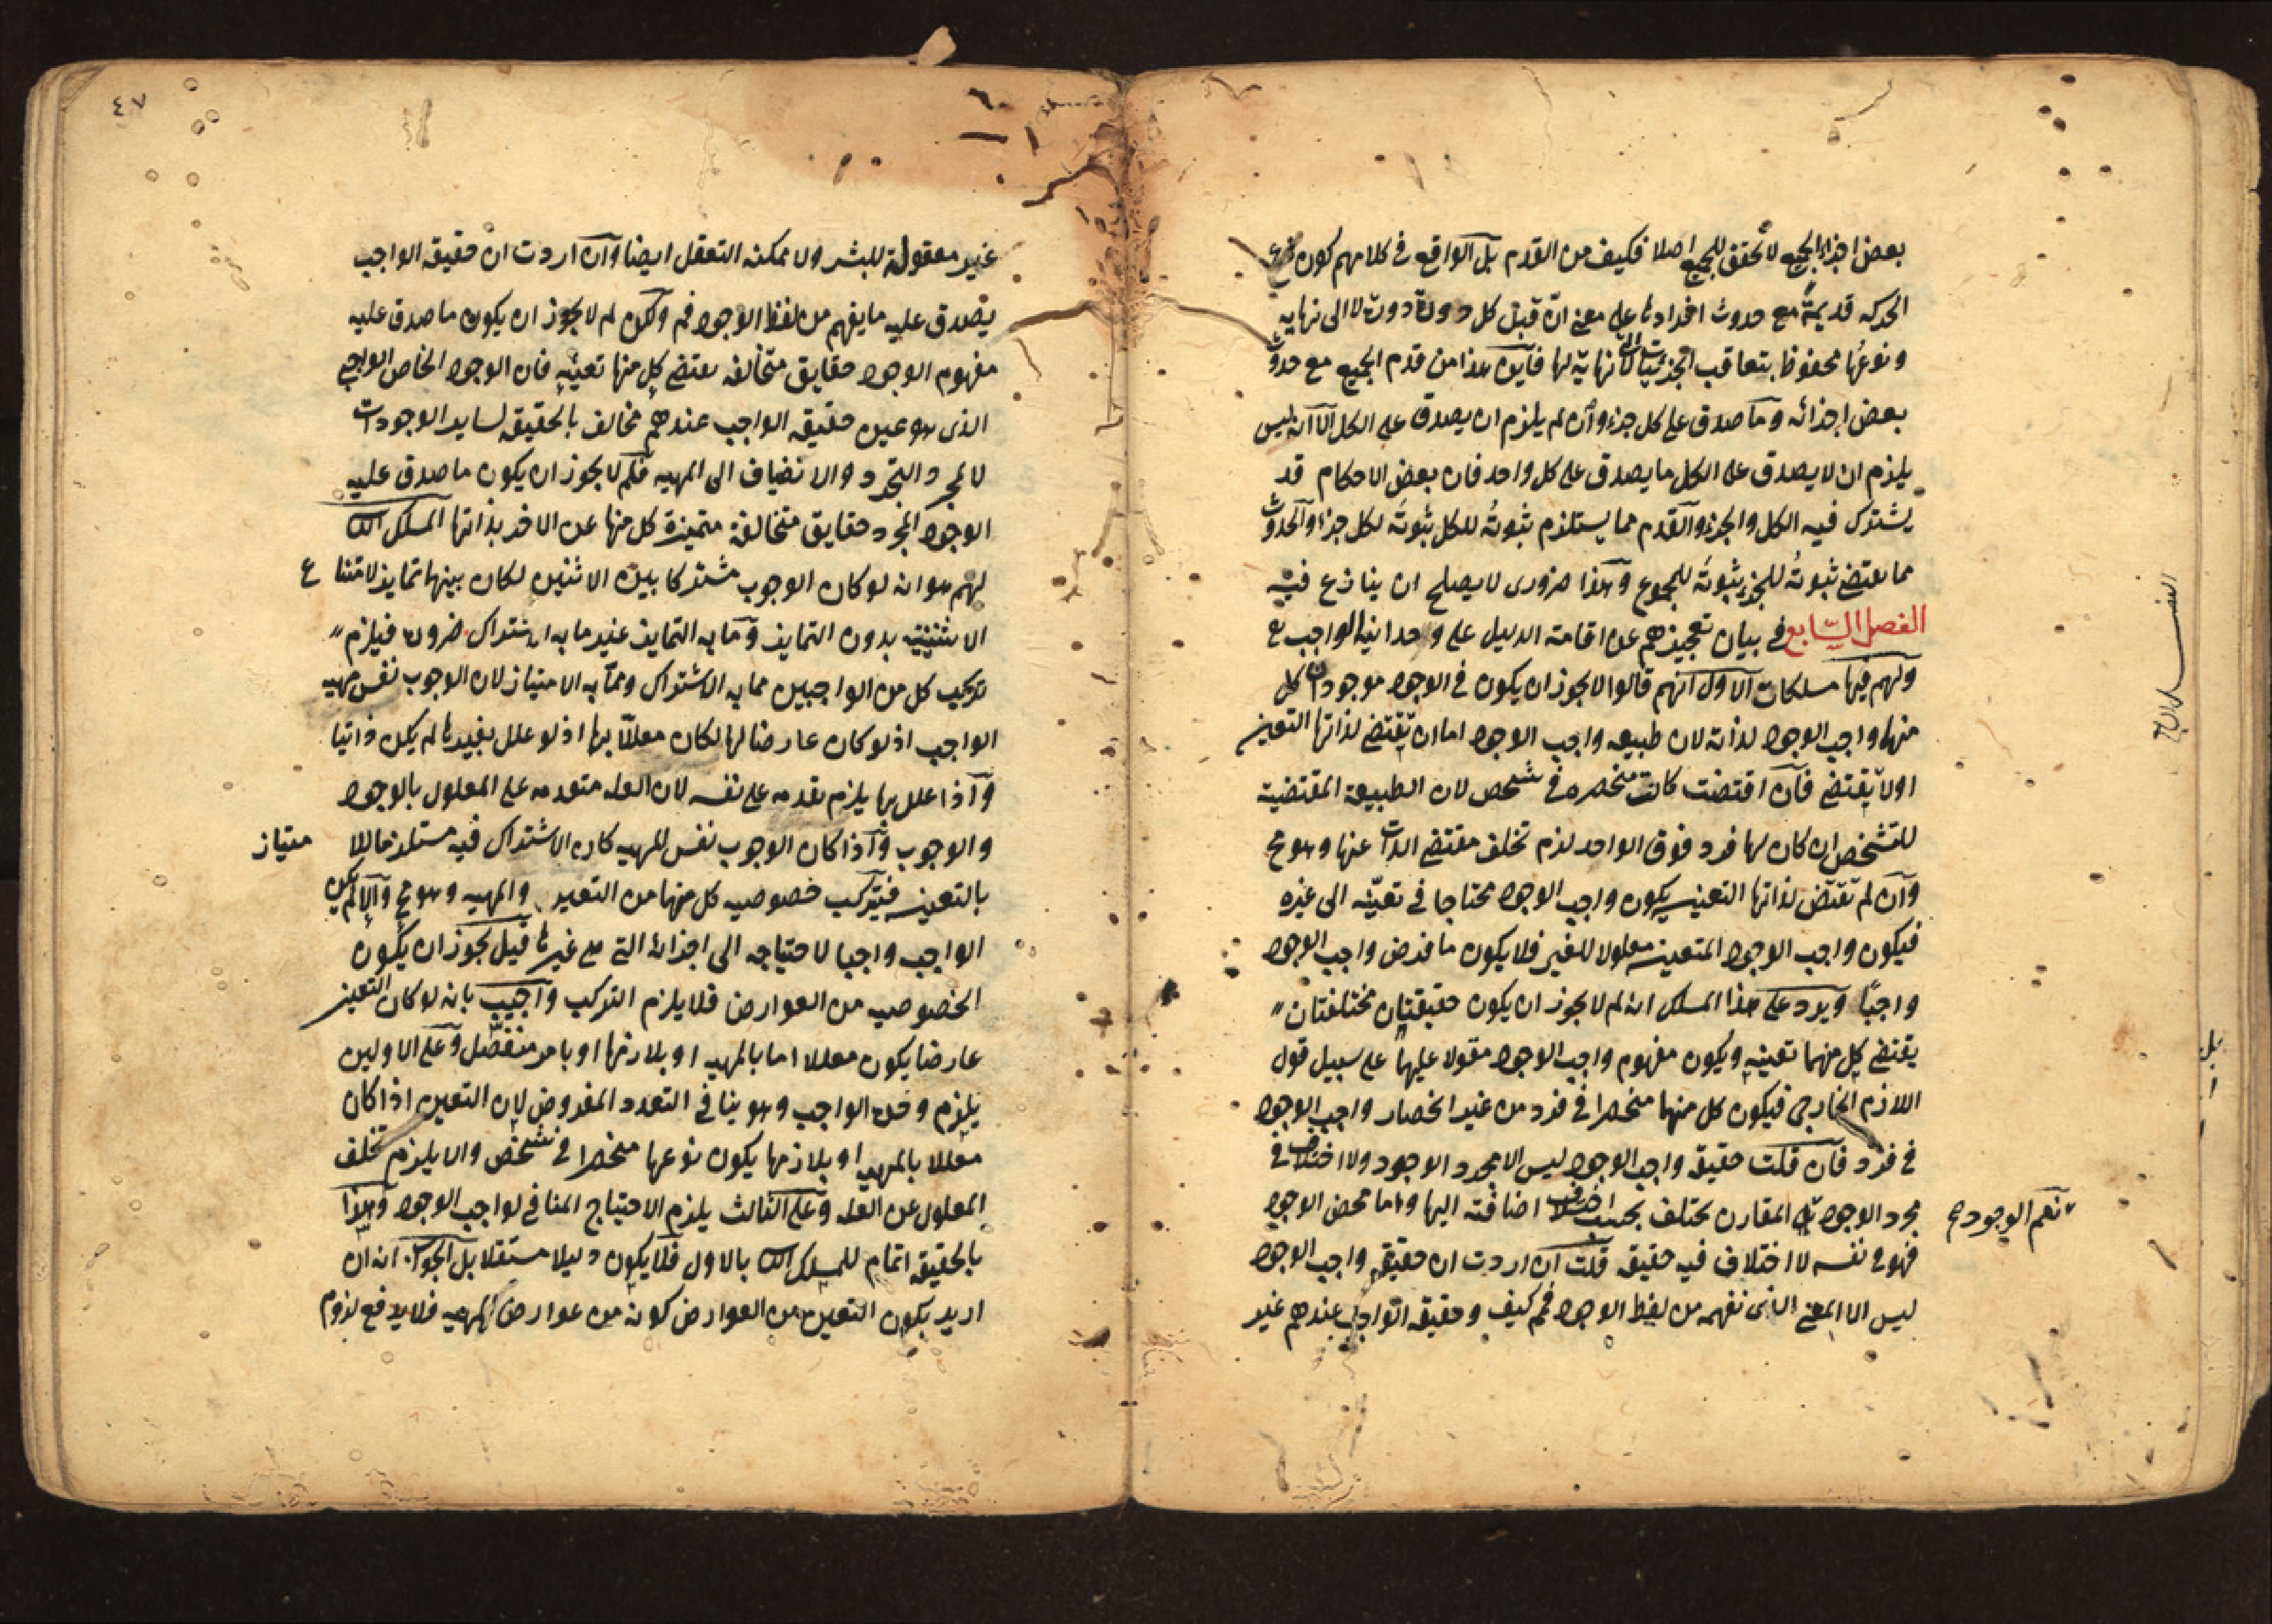 بعض اجزاء الجميع لا تحقق للجميع اصلا فكيف من القدم بل الواقع في كلامهم كون نوع
الحركه قديمة مع حدوث افرادها على معنى ان قبل كل دورة دورة لا الى نهايه
ونوعها محفوظ بتعاقب الجزئيات التي لا نهاية لها فاين هذا من قدم الجميع مع حدوث
بعض اجزائه وما صدق على كل جزء وان لم يلزم ان يصدق على الكل الا انه ليس
يلزم ان لا يصدق على الكل ما يصدق على كل واحد فان بعض الاحكام قد
يشترك فيه الكل والجزء والقدم مما يستلزم ثبوته للكل ثبوته لكل جزء والحدوث
مما يقتضي ثبوته للجزء ثبوته للمجموع وهذا ضروري لا يصلح ان ينازع فيه
الفصل السابع في بيان تعجيزهم عن اقامة الدليل على وحدانية الواجب تع
ولهم فيها مسلكان الاول انهم قالوا لا يجوز ان يكون في الوجود موجودان كل
منهما واجب الوجود لذاته لان طبيعه واجب الوجود اما ان تقتضي لذاتها التعين
اولا يقتضي فان اقتضت كانت منحصره في شخص لان الطبيعة المقتضية
للتشخص ان كان لها فرد فوق الواحد لزم تخلف مقتضى الذات عنها وهو مح
وان لم تقتض لذاتها التعين يكون واجب الوجود محتاجا في تعينه الى غيره
فيكون واجب الوجود المتعين معلولا للغير فلا يكون ما فرض واجب الوجود
واجبا ويرد على هذا المسلك انه لم لا يجوز ان يكون حقيقتان مختلفتان
يقتضي كل منهما تعينه ويكون مفهوم واجب الوجود مقولا عليهما على سبيل قول
اللازم الخارجي فيكون كل منهما منحصرا في فرد من غير انحصار واجب الوجود
في فرد فان قلت حقيقه واجب الوجود ليس الا مجرد الوجود ولا اختلاف في
مجرد الوجود المقارن يختلف بحسب اضافته اليها واما محض الوجود
نعم الوجود
فهو في نفسه لا اختلاف فيه حقيقه قلت ان اردت ان حقيقه واجب الوجود
ليس الا المعنى الذي نفهمه من لفظ الوجود فمم كيف وحقيقه الواجب عندهم غير
٤٧
غير معقولة للبشر ولا ممكنه التعقل ايضا وان اردت ان حقيقه الواجب
يصدق عليه ما يفهم من لفظ الوجود فم ولكن لم لا يجوز ان يكون ما صدق عليه
مفهوم الوجود حقايق متخالفه يقتضي كل منها تعينه فان الوجود الخاص الواجبي
الذي هو عين حقيقه الواجب عندهم مخالف بالحقيقه لساير الوجودات
لا لمجرد التجرد والانضياف الى المهيه فلم لا يجوز ان يكون ما صدق عليه
الوجود المجرد حقايق متخالفة متميزة كل منها عن الاخر بذاتها المسلك الثاني
لهم هو انه لو كان الوجوب مشتركا بين الاثنين لكان بينهما تمايز لامتناع
الاثنينيه بدون التمايز وما به التمايز غير ما به الاشتراك ضرورة فيلزم
تركيب كل من الواجبين مما به الاشتراك ومما به الامتياز لان الوجوب نفس مهيه
الواجب اذ لو كان عارضا لها لكان معللا بها اذ لو علل بغيرها لم يكن ذاتيا
واذا علل بها يلزم تقدمه على نفسه لان العله متقدمه على المعلول بالوجود
والوجوب واذا كان الوجوب نفس المهيه كان الاشتراك فيه مستلزما للا متياز
بالتعين فيتركب خصوصيه كل منهما من التعين والمهيه وهو مح والا لم يكن
الواجب واجبا لاحتياجه الى اجزائه التي هي غيرها قيل يجوز ان يكون
الخصوصيه من العوارض فلا يلزم التركب واجيب بانه لو كان التعين
عارضا يكون معللا اما بالمهيه او بلازمها او بامر منفصل وعلى الاولين
يلزم وحدة الواجب وهو ينافي التعدد المفروض لان التعين اذا كان
معللا بالمهيه او بلازمها يكون نوعها منحصرا في شخص والا يلزم تخلف
المعلول عن العله وعلى الثالث يلزم الاحتياج المنافي لواجب الوجود وهذا
بالحقيقه اتمام للمسلك الثاني بالاول فلا يكون دليلا مستقلا بل الجواب انه ان
اريد بكون التعين من العوارض كونه من عوارض المهيه فلا يدفع لزوم